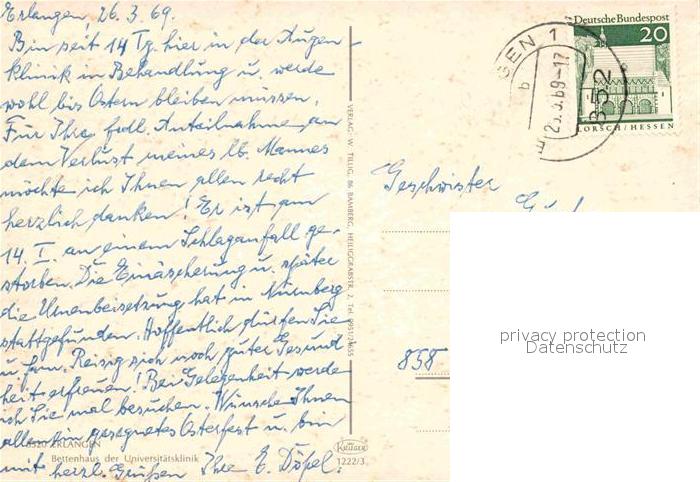 Erlangen 26.3.69.
Bin seit 14 Tg. hier in der Augen-
klinik in Behandlung u. werde
wohl bis Ostern bleiben müssen.
Für Ihre frdl. Anteilnahme am
dem Verlust meines lb. Mannes
möchte ich Ihnen allen recht
herzlich danken! Er ist am
14. I. an einem Schlaganfall ge-
storben. Die Einäscherung u. später
die Urnenbeisetzung hat in Nürnberg
stattgefunden. Hoffentlich dürfen Sie
u. Fam. Reisig sich noch guter Gesund-
heit erfreuen! Bei Gelegenheit werde
ich Sie mal besuchen. Wünsche Ihnen
allen ein gesegnetes Osterfest u. bin
mit herzl. Grüßen Ihre E. Döpel.
8520 ERLANGEN
Bettenhaus der Universitätsklinik
VERLAG: W. TILLIG, 86 BAMBERG, HEILIGGRABSTR. 2, Tel. 0951/
KRÜGER
1222/3
Deutsche Bundespost
20
LORSCH/HESSEN
GEN 1
b
69-17
352
Geschwister
858
privacy protection
Datenschutz